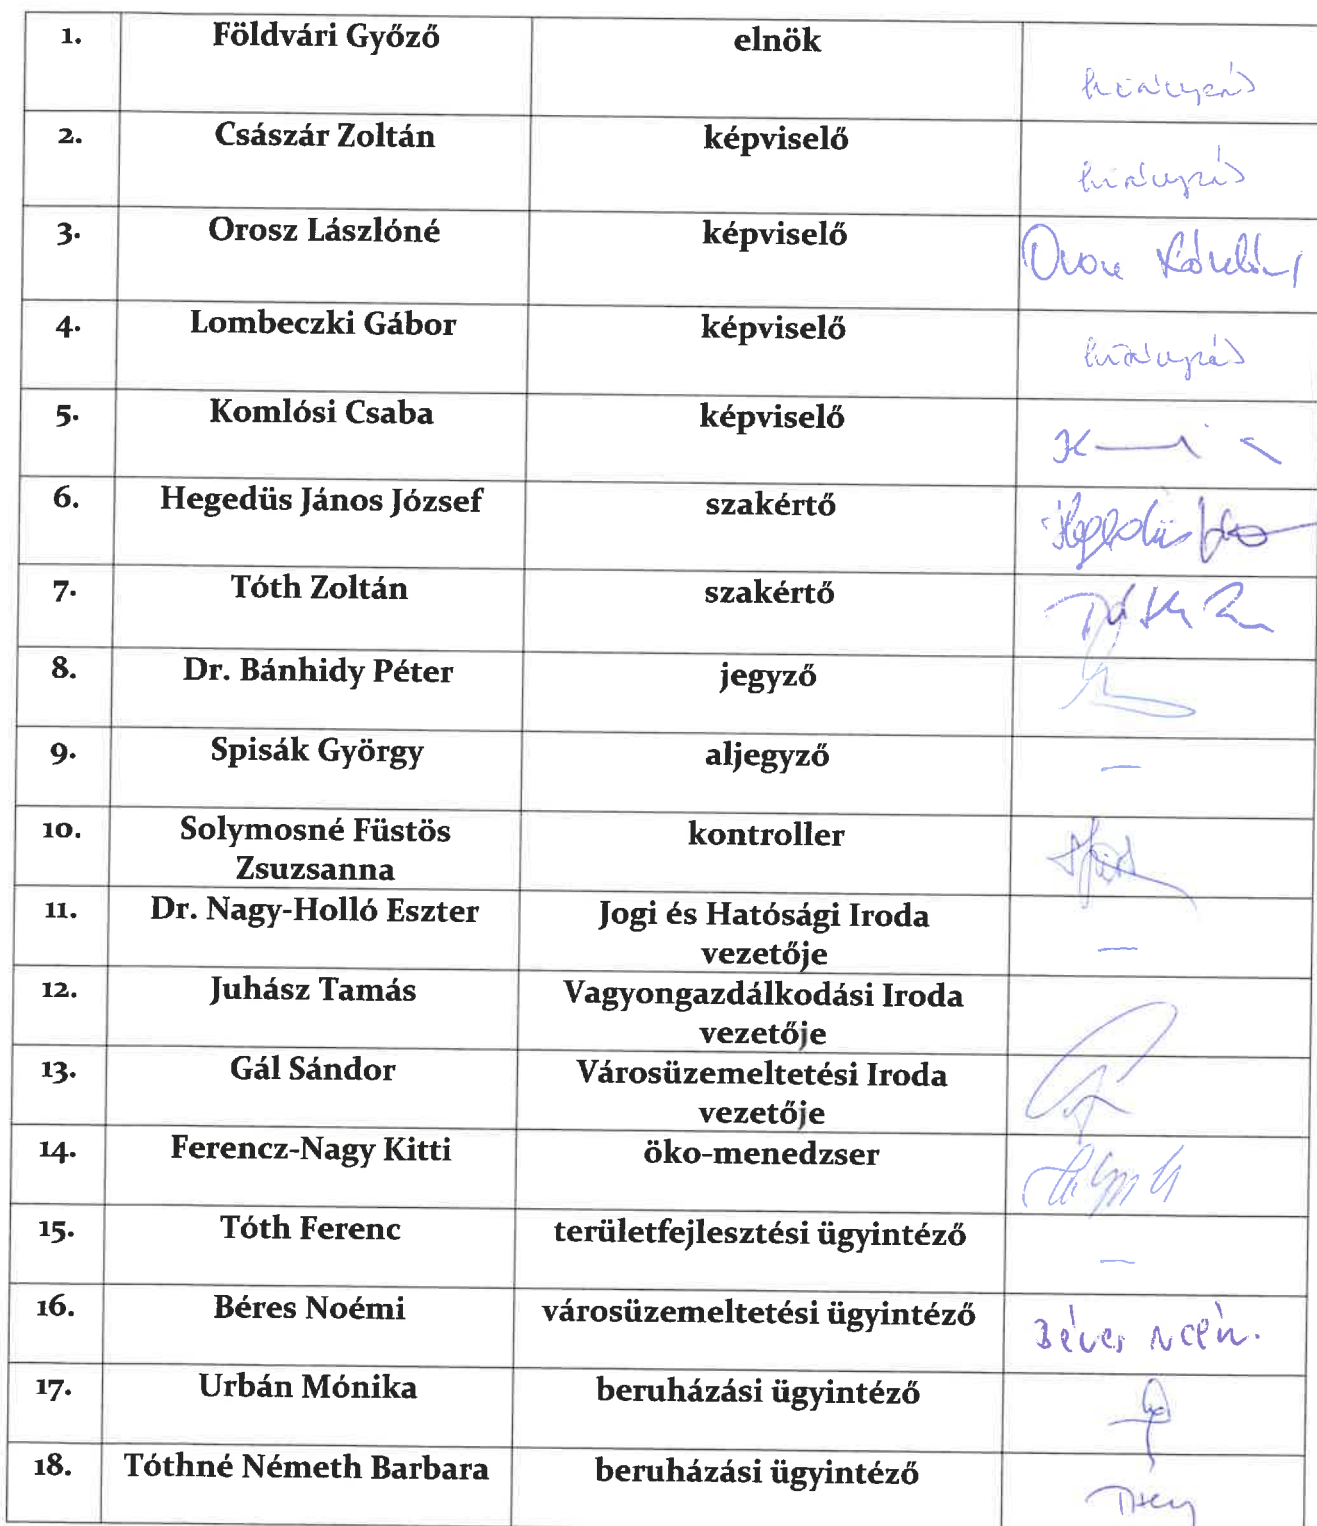 1. Földvári Győző elnök hiányzás
2. Császár Zoltán képviselő hiányzás
3. Orosz Lászlóné képviselő Orosz Lászlóné
4. Lombeczki Gábor képviselő hiányzás
5. Komlósi Csaba képviselő
6. Hegedüs János József szakértő Hegedüs
7. Tóth Zoltán szakértő Tóth Z
8. Dr. Bánhidy Péter jegyző
9. Spisák György aljegyző —
10. Solymosné Füstös kontroller
Zsuzsanna
11. Dr. Nagy-Holló Eszter Jogi és Hatósági Iroda —
vezetője
12. Juhász Tamás Vagyongazdálkodási Iroda
vezetője
13. Gál Sándor Városüzemeltetési Iroda
vezetője
14. Ferencz-Nagy Kitti öko-menedzser
15. Tóth Ferenc területfejlesztési ügyintéző —
16. Béres Noémi városüzemeltetési ügyintéző Béres Noémi
17. Urbán Mónika beruházási ügyintéző
18. Tóthné Németh Barbara beruházási ügyintéző